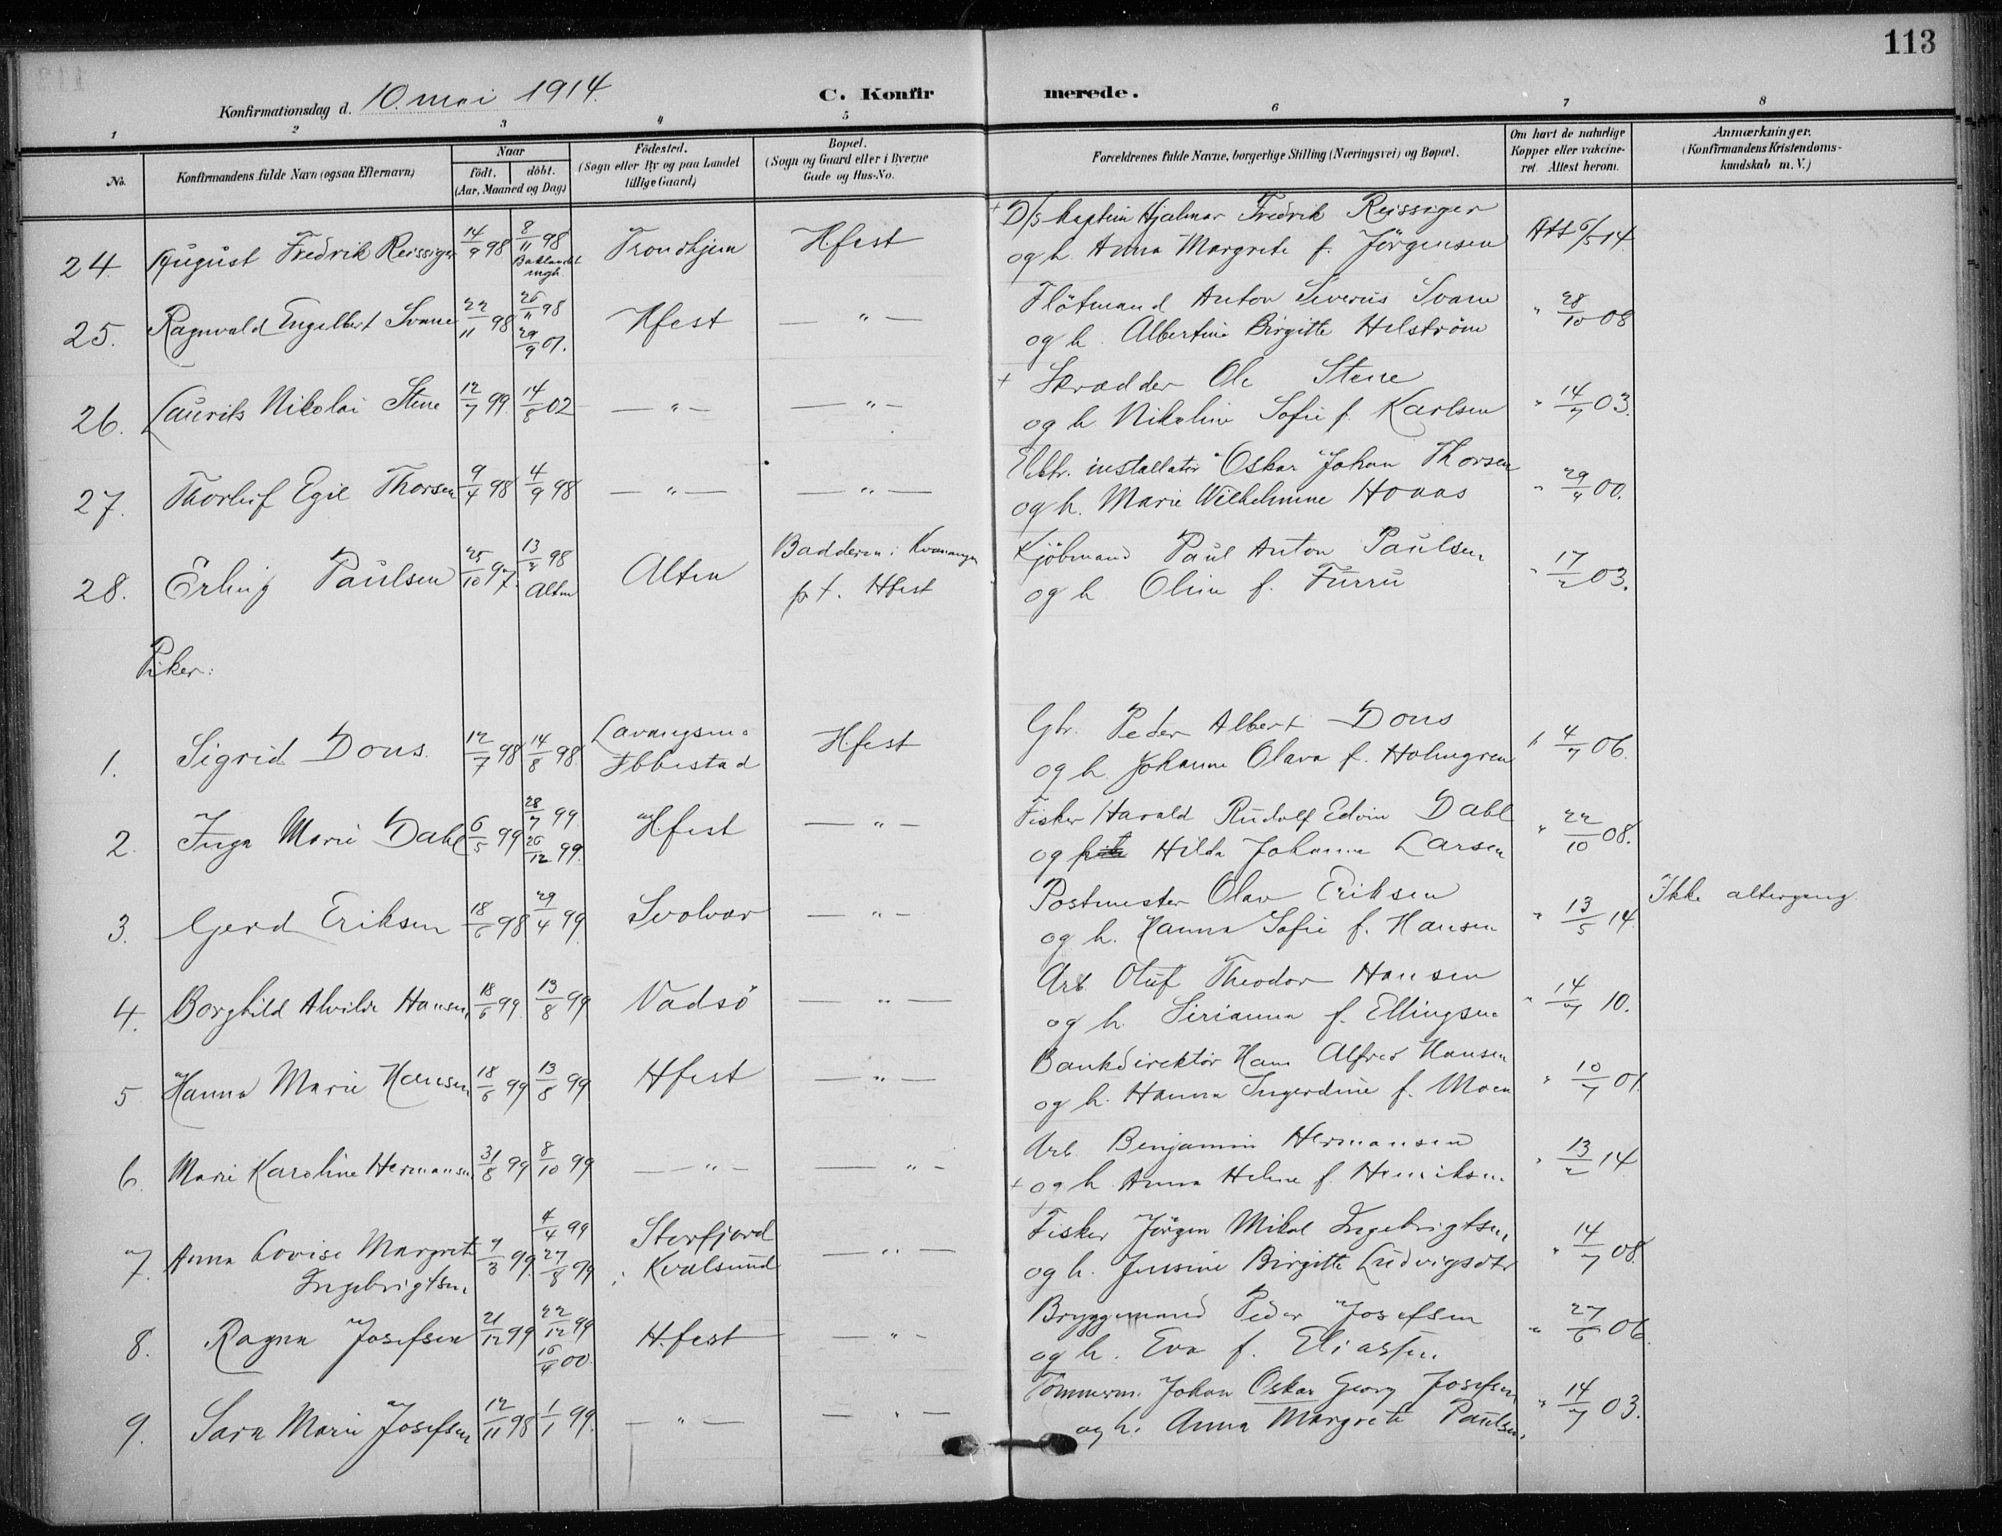 113
Konfirmationsdag d. 10. mai 1914.
C. Konfirmerede.
1 2 3 4 5 6 7 8
No.
Konfirmandens fulde Navn (ogsaa Efternavn)
Naar
født. døbt.
(Aar, Maaned og Dag)
Fødested.
(Sogn eller By og paa Landet
tillige Gaard)
Bopæl.
(Sogn og Gaard eller i Byerne
Gade og Hus-No.
Forældrenes fulde Navne, borgerlige Stilling (Næringsvei) og Bopæl.
Om havt de naturlige
Kopper eller vakcine-
ret. Attest herom.
Anmærkninger.
(Konfirmandens Kristendoms-
kundskab m. V.)
24. August Fredrik Reissiger 14/9 98 8/11 98 Trondhjem Hfest + D/s kaptein Hjalmar Fredrik Reissiger Att 6/5 14.
Baklandet
og h. Anna Margrete f. Jörgensen
25. Ragnvald Engelbert Svane 22/11 98 26/11 98 Hfest — " — Flötmand Anton Severius Svane " 28/10 08
29/9 01.
og h. Albertine Birgitte Helström
26. Laurits Nikolai Stene 12/7 99. 14/8 02 — " — — " — + Skrædder Ole Stene " 14/7 03.
og h Nikoline Sofie f. Karlsen
27. Thorleif Egil Thorsen 9/4 98 4/9 98 — " — — " — Elktr. installatör Oskar Johan Thorsen " 29/4 00.
og h. Marie Wilhelmine Hoaas
28. Erling Paulsen 25/10 97. 13/2 98 Alten Badderen i Kvænangen Kjöbmand Paul Anton Paulsen " 17/2 03.
Alten p t. Hfest og h. Oline f. Furru
Piker:
1. Sigrid Dons. 12/7 98 14/8 98. Lavangsm. Hfest Gbr. Peder Albert Dons " 4/7 06.
Ibbestad og h. Johanne Olava f. Holmgren
2. Inga Marie Dahl 6/5 99 28/7 99 Hfest — " — Fisker Harald Rudolf Edvin Dahl " 22/10 08.
26/12 99. og Hilda Johanne Larsen
3. Gerd Eriksen 18/6 98 29/4 99 Svolvær — " — Postmester Olav Eriksen " 13/5 14. Ikke altergang
og h. Hanna Sofie f. Hansen
4. Borghild Alvilde Hansen 18/6 99. 13/8 99 Vadsö — " — Arb. Oluf Theodor Hansen " 14/7 10.
og h. Sirianna f. Ellingsen
5 Hanna Marie Hansen 18/6 99 13/8 99 Hfest — " — Bankdirektör Hans Alfred Hansen " 10/7 01.
og h. Hanna Ingerdine f. Moen
6. Marie Karoline Hermansen 31/8 99 8/10 99 — " — — " — Arb. Benjamin Hermansen " 13/2 14
+ og h. Anna Helene f. Henriksen
7. Anna Lovise Margrete 7/3 99. 4/4 99 Storfjord — " — Fisker Jörgen Mikal Ingebrigtsen " 14/7 08.
Ingebrigtsen 27/8 99 i Kvalsund og h. Jensine Birgitte Ludvigsdtr
8. Ragna Josefsen 21/12 99 22/12 99 H.fest — " — Bryggemand Peder Josefsen " 27/6 06.
16/4 00. og h. Eva f. Eliassen.
9. Sara Marie Josefsen 12/11 98 1/1 99. — " — — " — Tömmerm. Johan Oskar Georg Josefsen " 14/7 03.
og h. Anna Margrete Paulsen.